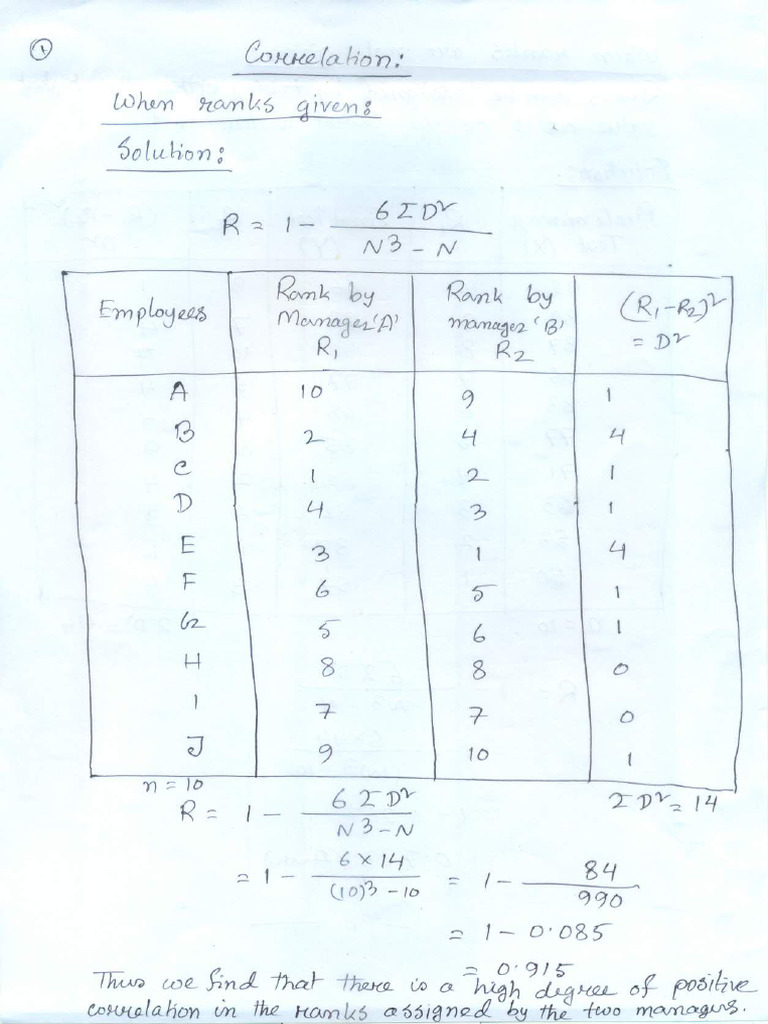 1
Correlation:
When ranks given:
Solution:
R = 1 - 6ΣD² / N3 - N
Employees | Rank by Manager 'A' R₁ | Rank by manager 'B' R₂ | (R₁-R₂)² = D²
A 10 9 1
B 2 4 4
C 1 2 1
D 4 3 1
E 3 1 4
F 6 5 1
G 5 6 1
H 8 8 0
I 7 7 0
J 9 10 1
n = 10
ΣD² = 14
R = 1 - 6ΣD² / N3-N
= 1 - 6 × 14 / (10)³ - 10 = 1 - 84 / 990
= 1 - 0.085
= 0.915
Thus we find that there is a high degree of positive
correlation in the ranks assigned by the two managers.